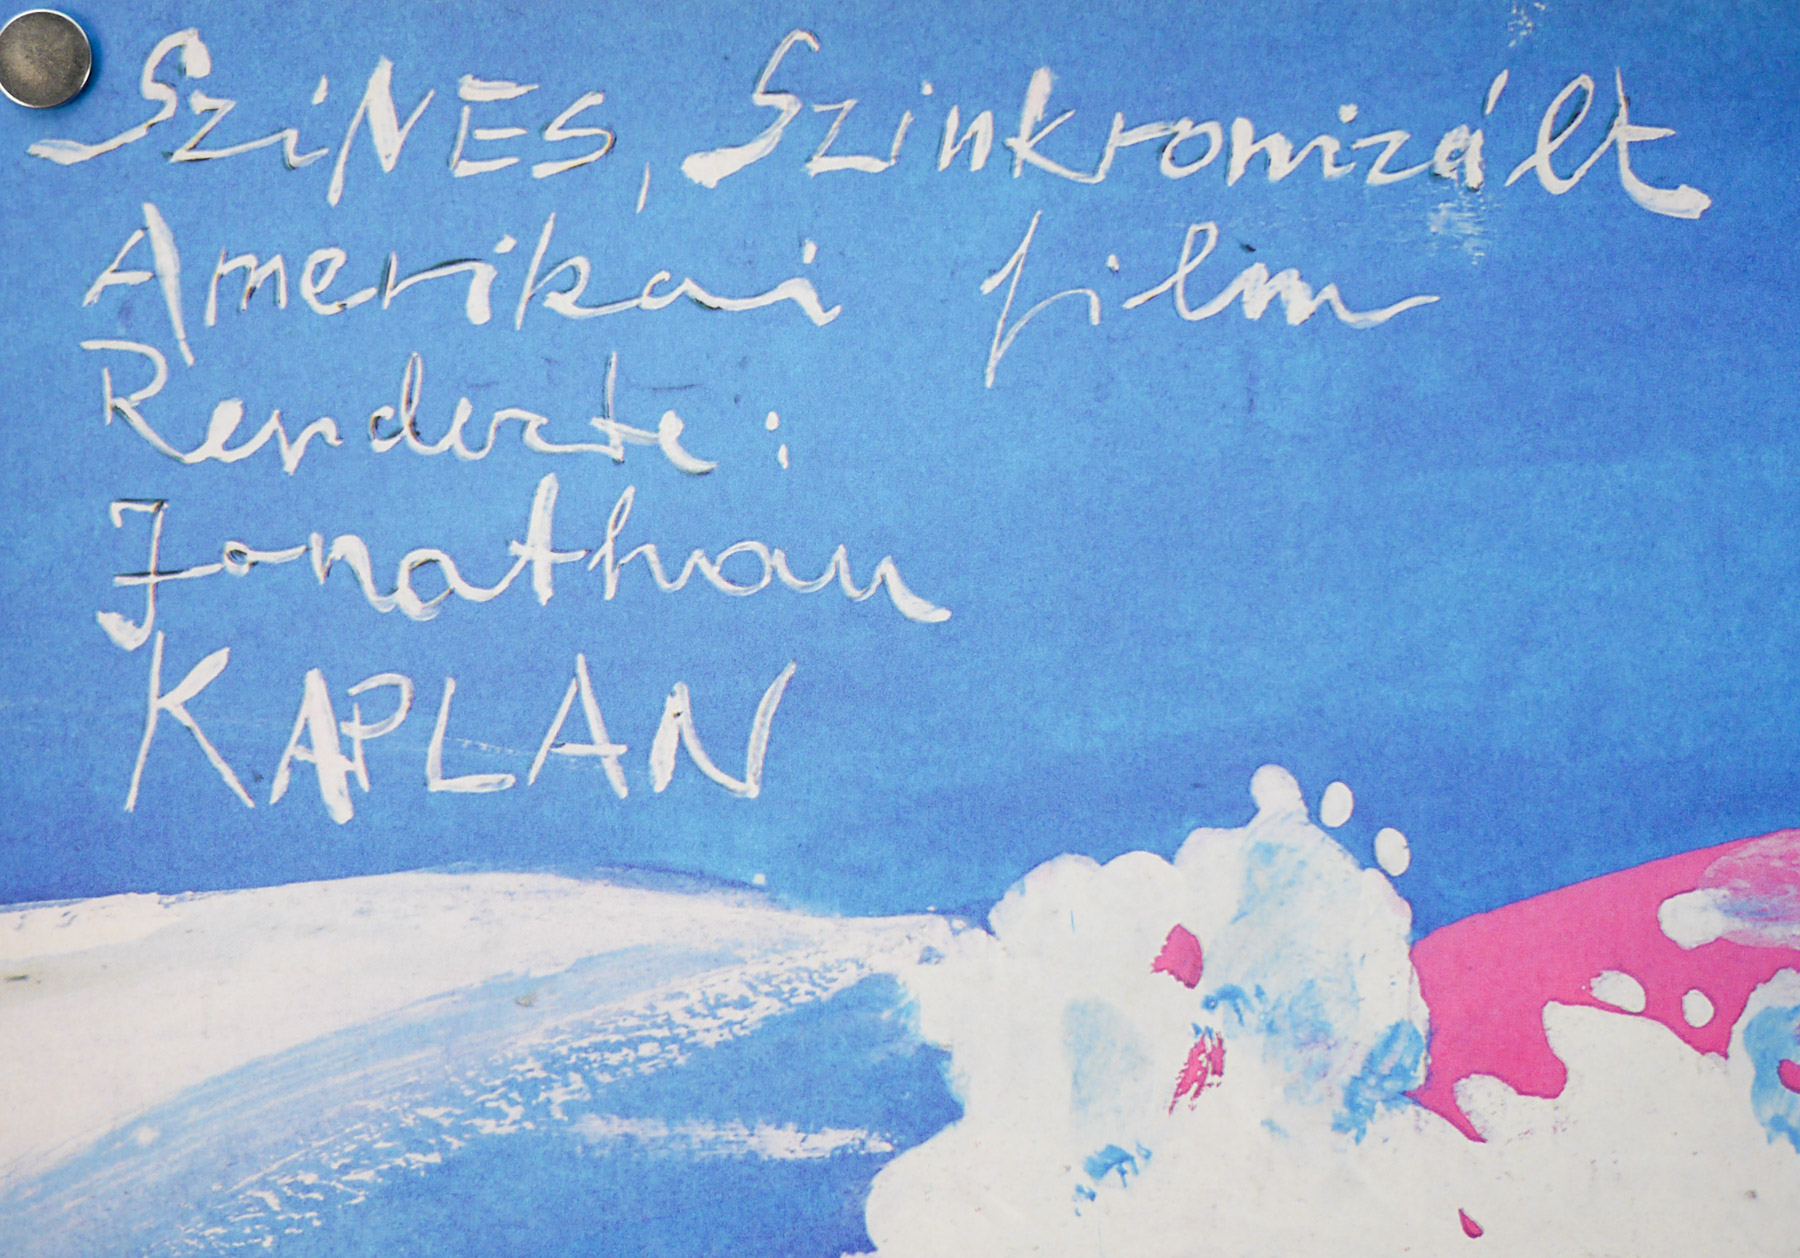 SziNES, Szinkronizált
Amerikai film
Rendezte:
Jonathan
KAPLAN